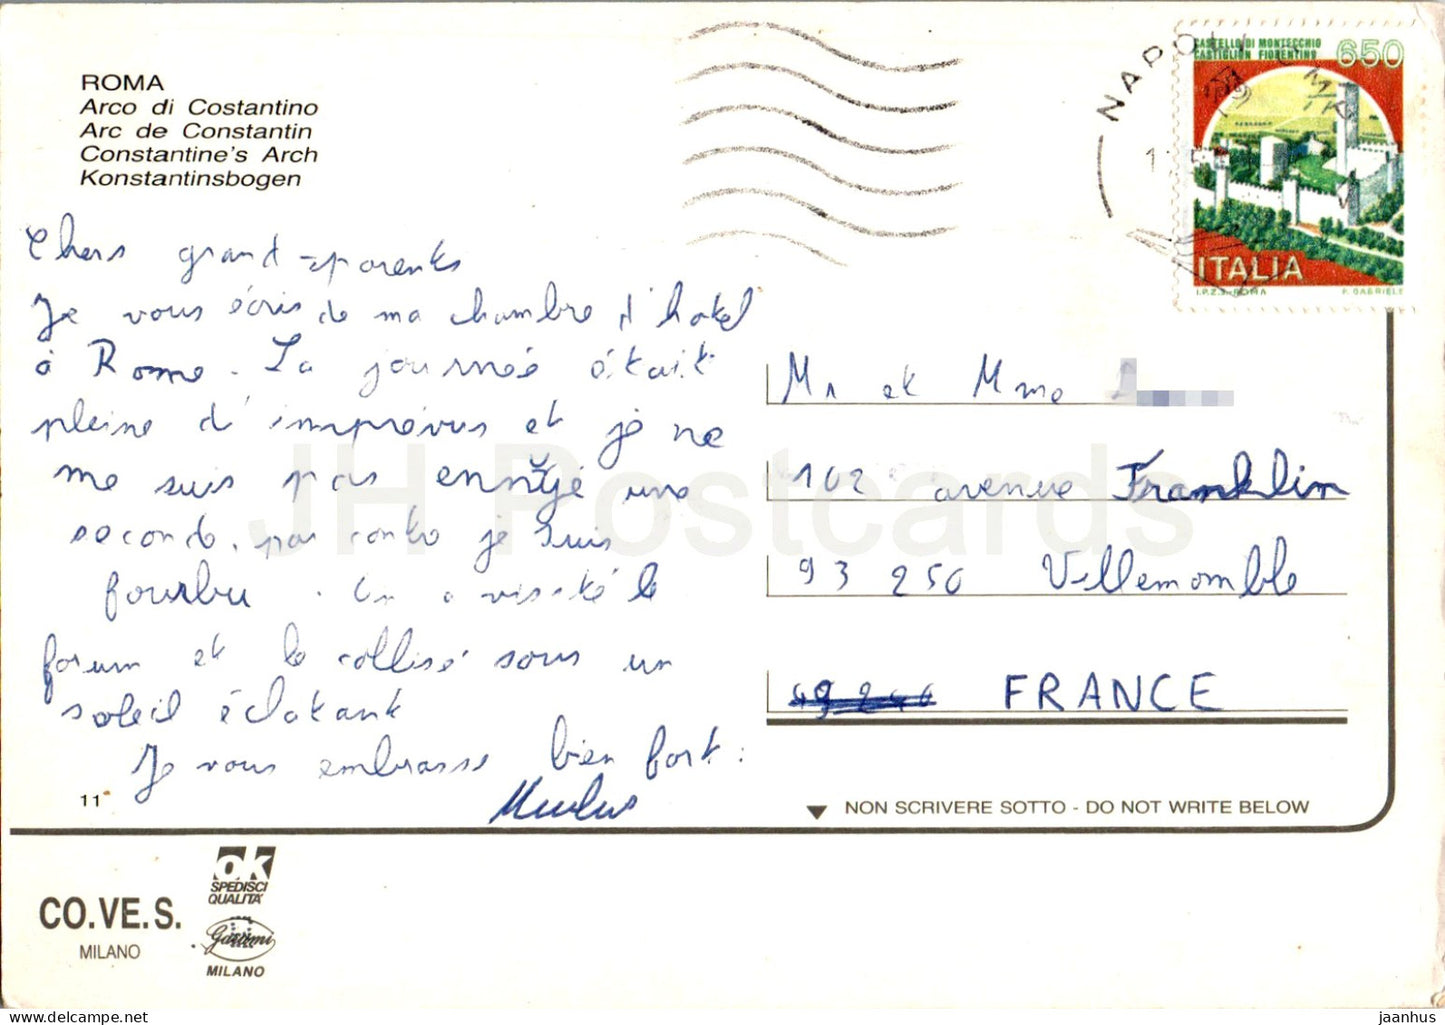 ROMA
Arco di Costantino
Arc de Constantin
Constantine's Arch
Konstantinsbogen
Chers grand-parents
Je vous écris de ma chambre d'hotel
à Rome. La journée était
pleine d'imprévus et je ne
me suis pas ennuyé une
seconde. par contre je suis
fourbu. On a visité le
forum et le collisé sous un
soleil éclatant
Je vous embrasse bien fort.
11
NAPOLI
CASTELLO DI MONTECCHIO
CASTIGLION FIORENTINO
650
ITALIA
I.P.Z.S.-ROMA P. GABRIELE
Mr et Mme
102 avenue Franklin
93 250 Villemomble
FRANCE
NON SCRIVERE SOTTO - DO NOT WRITE BELOW
CO.VE.S.
MILANO
OK
SPEDISCI
QUALITA'
Garami
MILANO
JH Postcards
jaanhus
delcampe.net